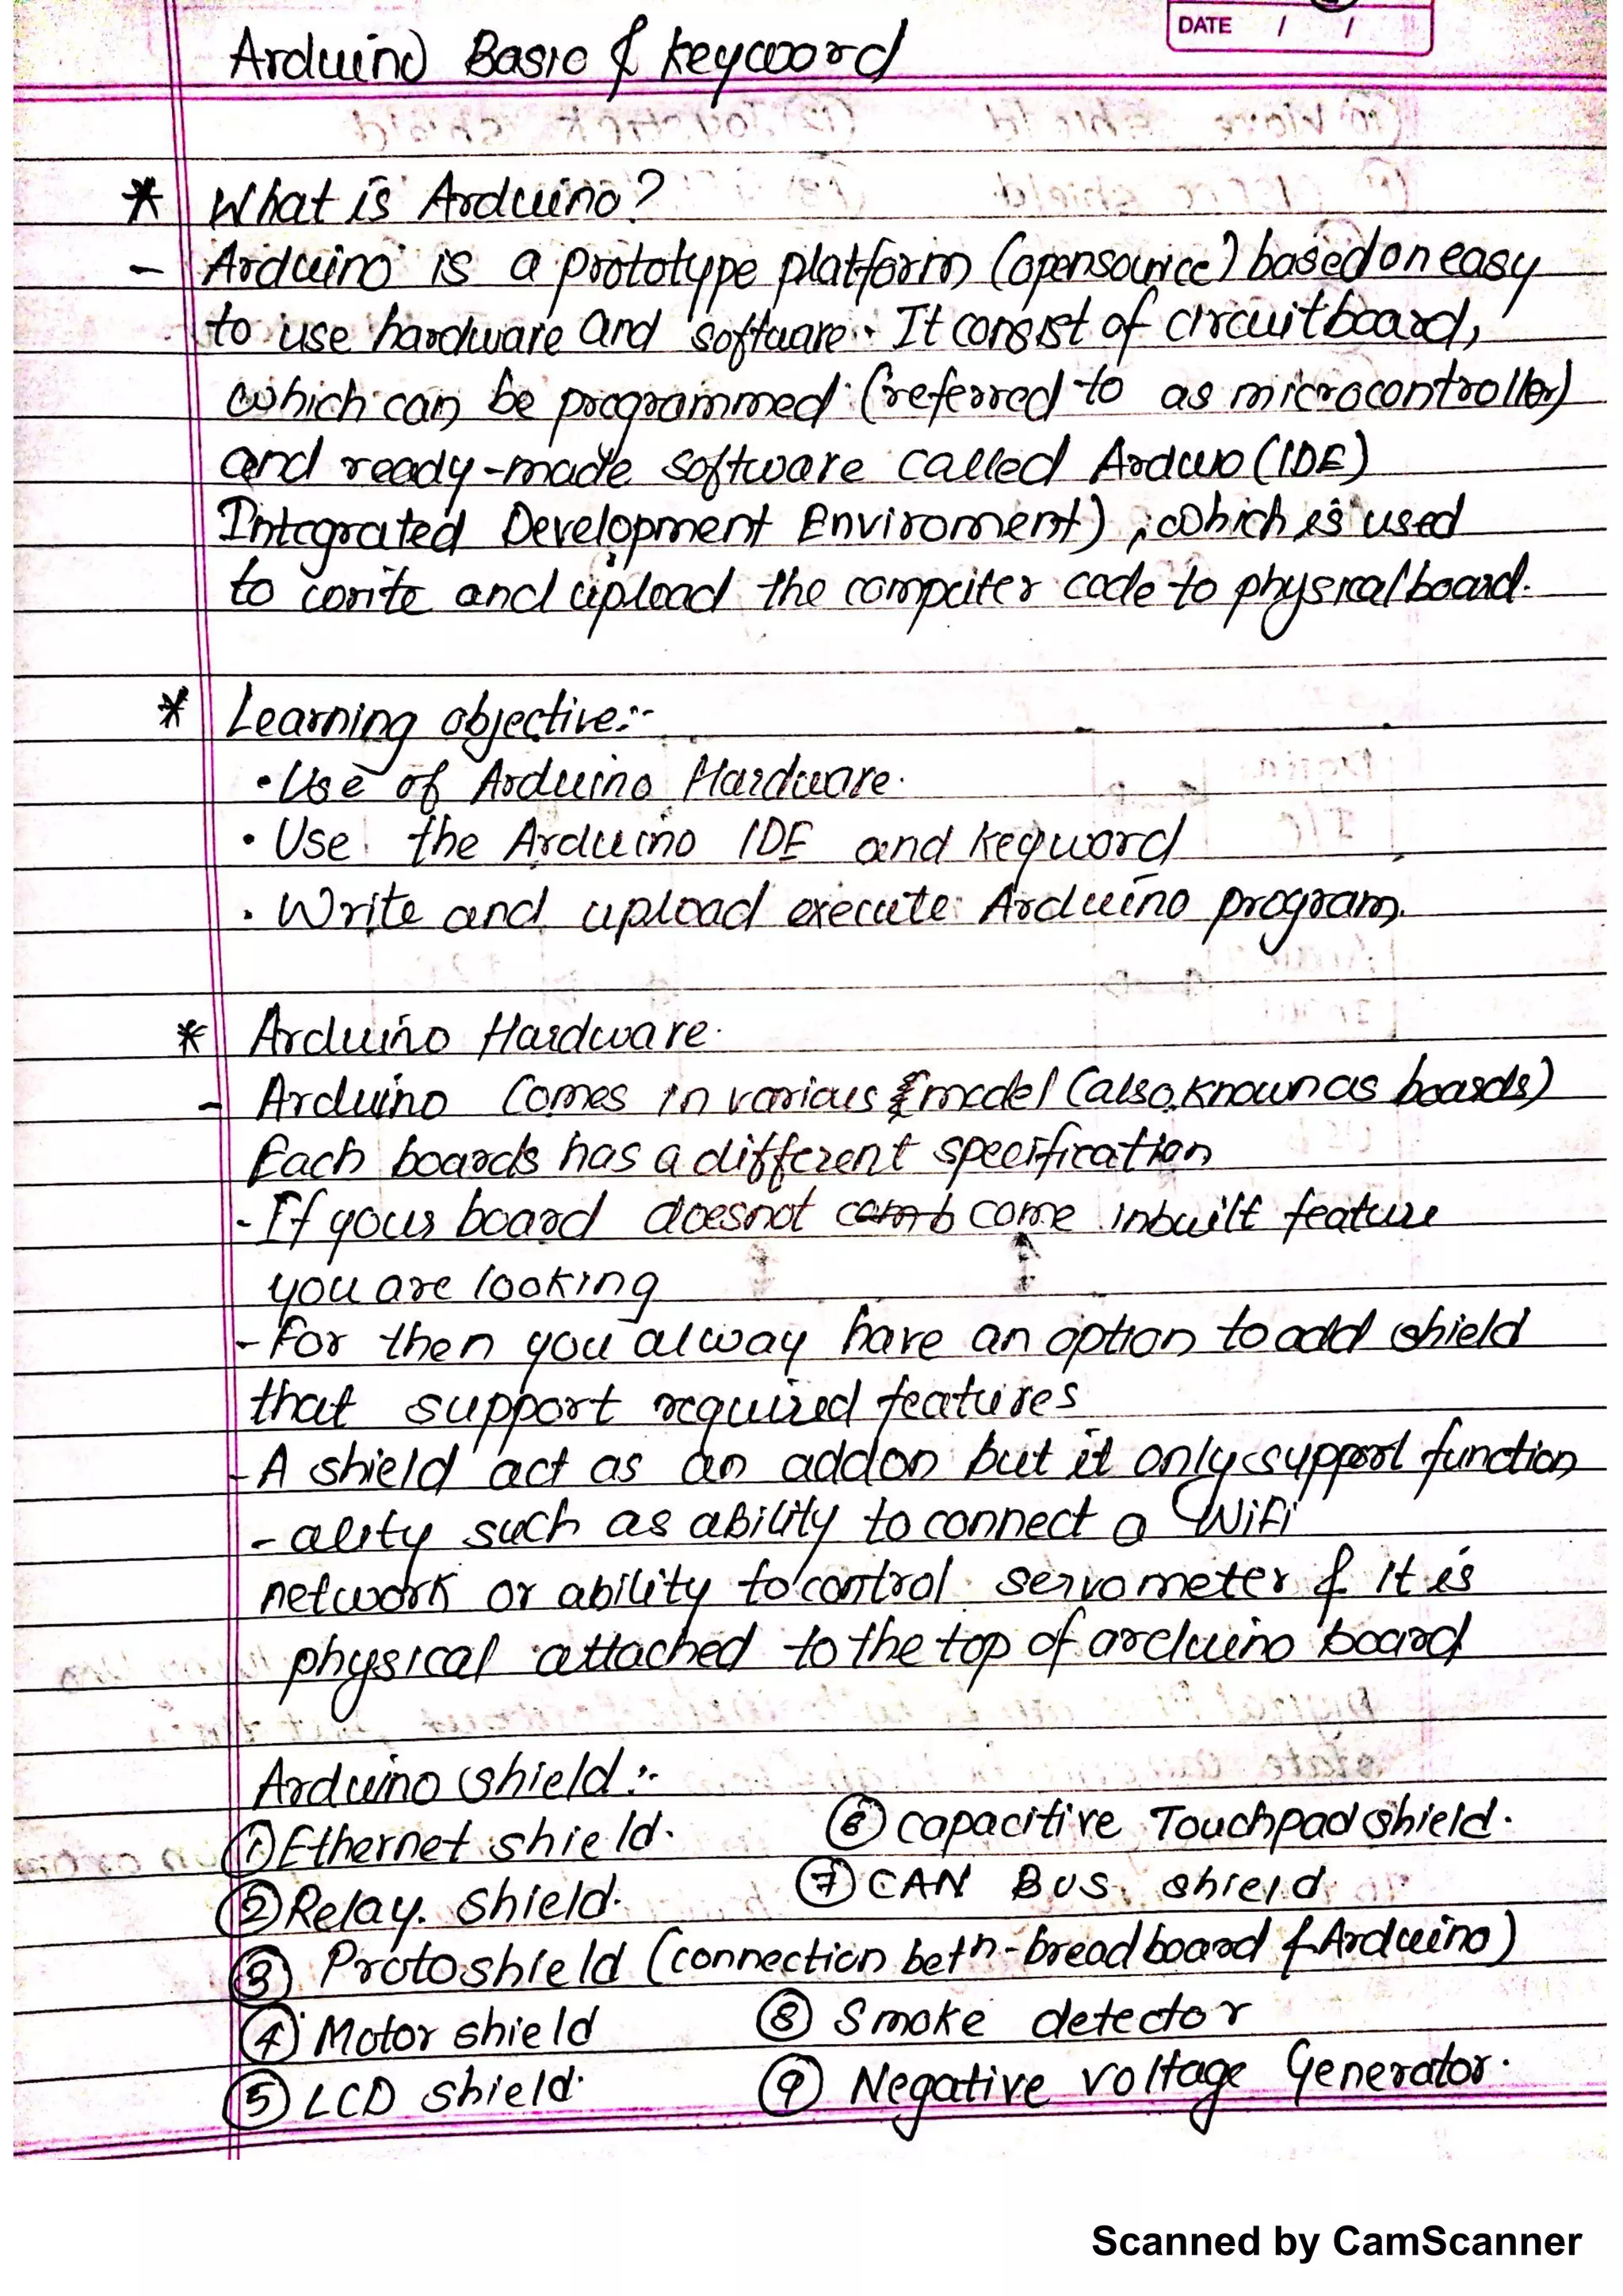 DATE / /
Arduino Basic & keyword
* What is Arduino?
- Arduino is a prototype platform (opensource) based on easy
to use hardware and software. It consist of circuitboard,
which can be programmed (referred to as microcontroller)
and ready-made software called Arduno (IDE)
Integrated Development Enviroment), which is used
to write and upload the computer code to physical board.
* Learning objective:-
• Use of Arduino Hardware.
• Use the Arduino IDE and keyword
• Write and upload execute Arduino program.
* Arduino Hardware.
- Arduino Comes in various model (also known as boards)
Each boards has a different specification
- If your board doesnot come inbuilt feature
you are looking
- For then you alway have an option to add shield
that support required features
- A shield act as an addon but it only support function
- ality such as ability to connect a WiFi
network or ability to control servometer & it is
physical attached to the top of arduino board
Arduino shield :-
① Ethernet shield.
⑥ capacitive Touchpad shield.
② Relay. shield.
⑦ CAN BUS shield
③ Protoshield (connection betn - breadboard & Arduino)
④ Motor shield
⑧ Smoke detector
⑤ LCD shield.
⑨ Negative voltage Generator.
Scanned by CamScanner